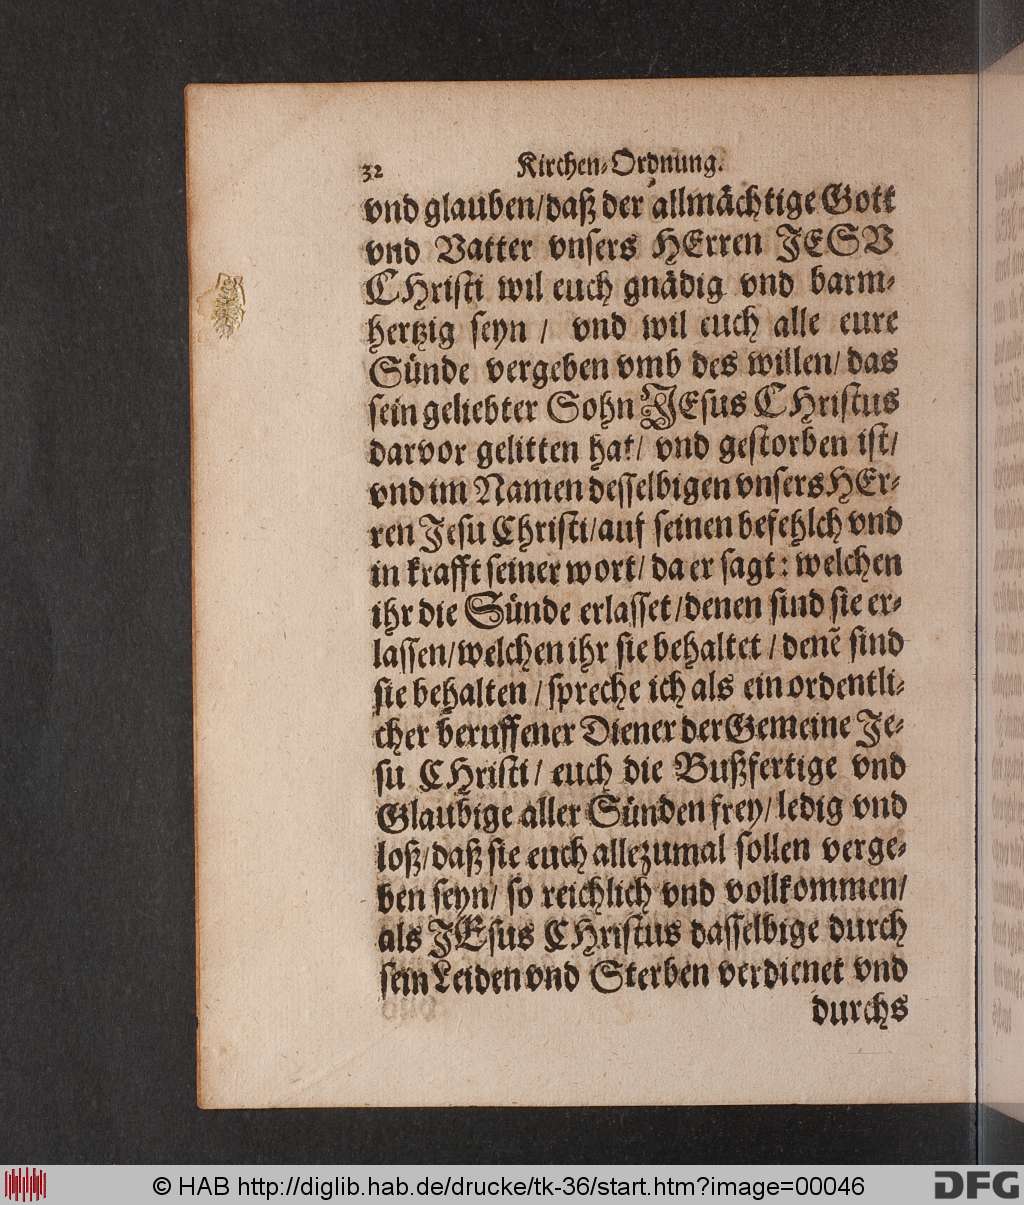 32 Kirchen-Ordnung.
vnd glauben/daß der allmächtige Gott
vnd Vatter vnsers HErren JESV
CHristi wil euch gnädig vnd barm-
hertzig seyn / vnd wil euch alle eure
Sünde vergeben vmb des willen/ das
sein geliebter Sohn JEsus CHristus
darvor gelitten hat/ vnd gestorben ist/
vnd im Namen desselbigen vnsers HEr-
ren Jesu Christi/auf seinen befehlch vnd
in krafft seiner wort/ da er sagt: welchen
ihr die Sünde erlasset/denen sind sie er-
lassen/welchen ihr sie behaltet / denẽ sind
sie behalten / spreche ich als ein ordentli-
cher beruffener Diener der Gemeine Je-
su CHristi/ euch die Bußfertige vnd
Glaubige aller Sünden frey/ ledig vnd
loß/daß sie euch allezumal sollen verge-
ben seyn/ so reichlich vnd vollkommen/
als JEsus CHristus dasselbige durch
sein Leiden vnd Sterben verdienet vnd
durchs
© HAB http://diglib.hab.de/drucke/tk-36/start.htm?image=00046
DFG